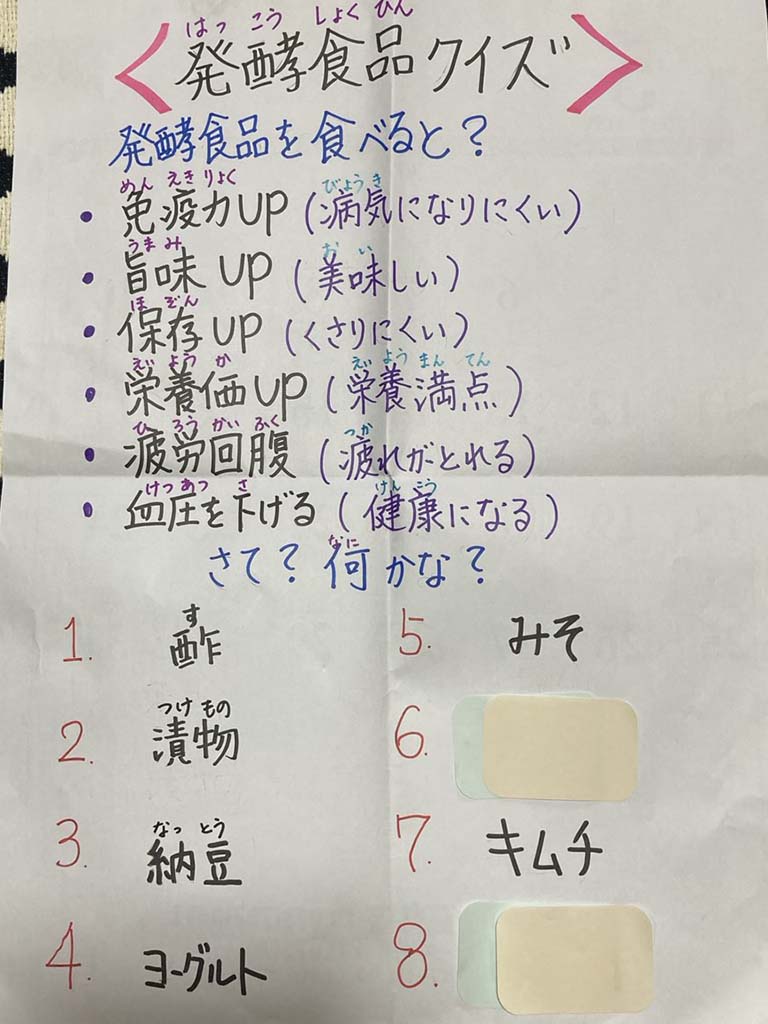 はっこうしょくひん
<発酵食品クイズ>
発酵食品を食べると?
めんえきりょく びょうき
・免疫力UP(病気になりにくい)
うまみ おい
・旨味UP(美味しい)
ほぞん
・保存UP(くさりにくい)
えいようか えいようまんてん
・栄養価UP(栄養満点)
ひろうかいふく つか
・疲労回腹(疲れがとれる)
けつあつ さ けんこう
・血圧を下げる(健康になる)
なに
さて?何かな?
す
1. 酢
つけもの
2. 漬物
なっとう
3. 納豆
4. ヨーグルト
5. みそ
6.
7. キムチ
8.